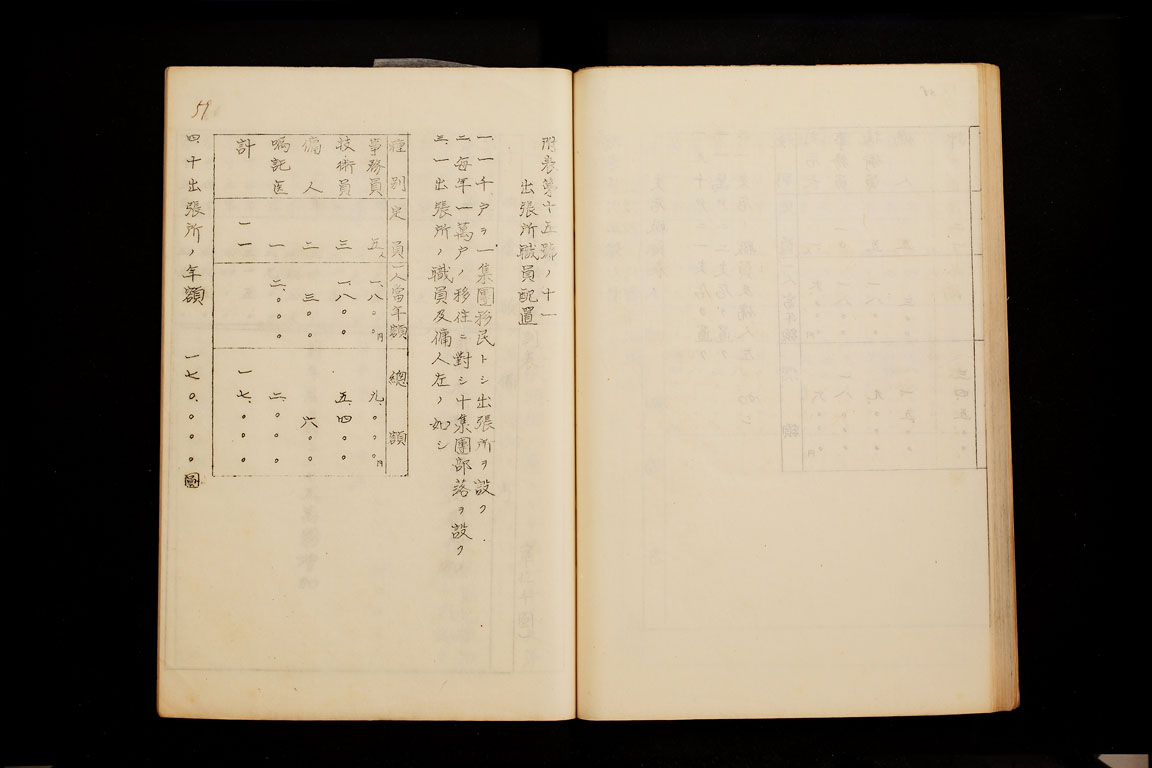 附表第十五號ノ十一
出張所職員配置
一、一千戸ヲ一集團移民トシ出張所ヲ設ク
二、每年一萬戸ノ移住ニ對シ十集團部落ヲ設ク
三、一出張所ノ職員及傭人左ノ如シ
種別 定員 一人當年額 總額
事務員 五人 一、八〇〇円 九、〇〇〇円
技術員 三 一、八〇〇 五、四〇〇
傭人 二 三〇〇 六〇〇
嘱託医 一 二、〇〇〇 二、〇〇〇
計 一一 一七、〇〇〇
四、十出張所ノ年額 一七〇、〇〇〇圓
59